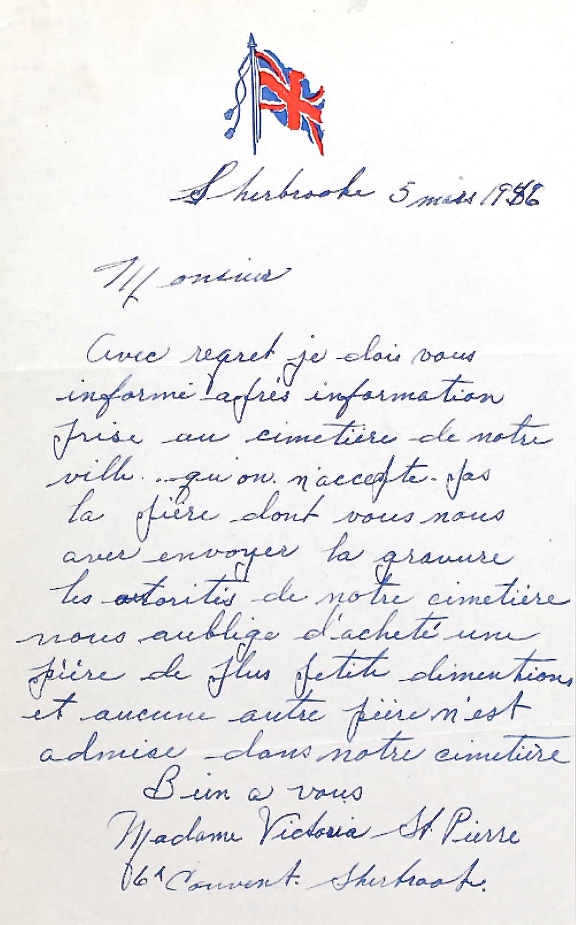 Sherbrooke 5 mars 19
Monsieur
Avec regret je dois vous
informé après information
prise au cimetière de notre
ville...qu'on n'accepte pas
la pière dont vous nous
aver envoyer la gravure
les autoritis de notre cimetière
nous aublige d'acheté une
pière de plus petite dimentions
et aucune autre pière n'est
admise dans notre cimetière
Bien a vous
Madame Victoria St. Pierre
Couvent. Sherbrook.